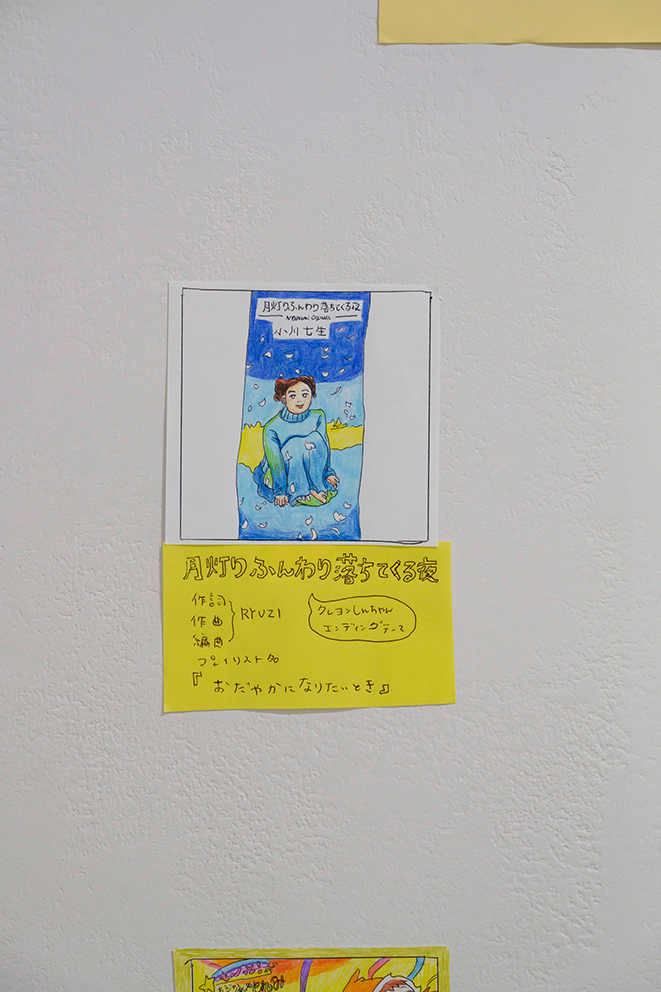 月灯りふんわり落ちてくる夜
小川七生
月灯りふんわり落ちてくる夜
作詞
作曲
編曲
RYUZI
クレヨンしんちゃん
エンディングテーマ
プレイリスト名
『おだやかになりたいとき』